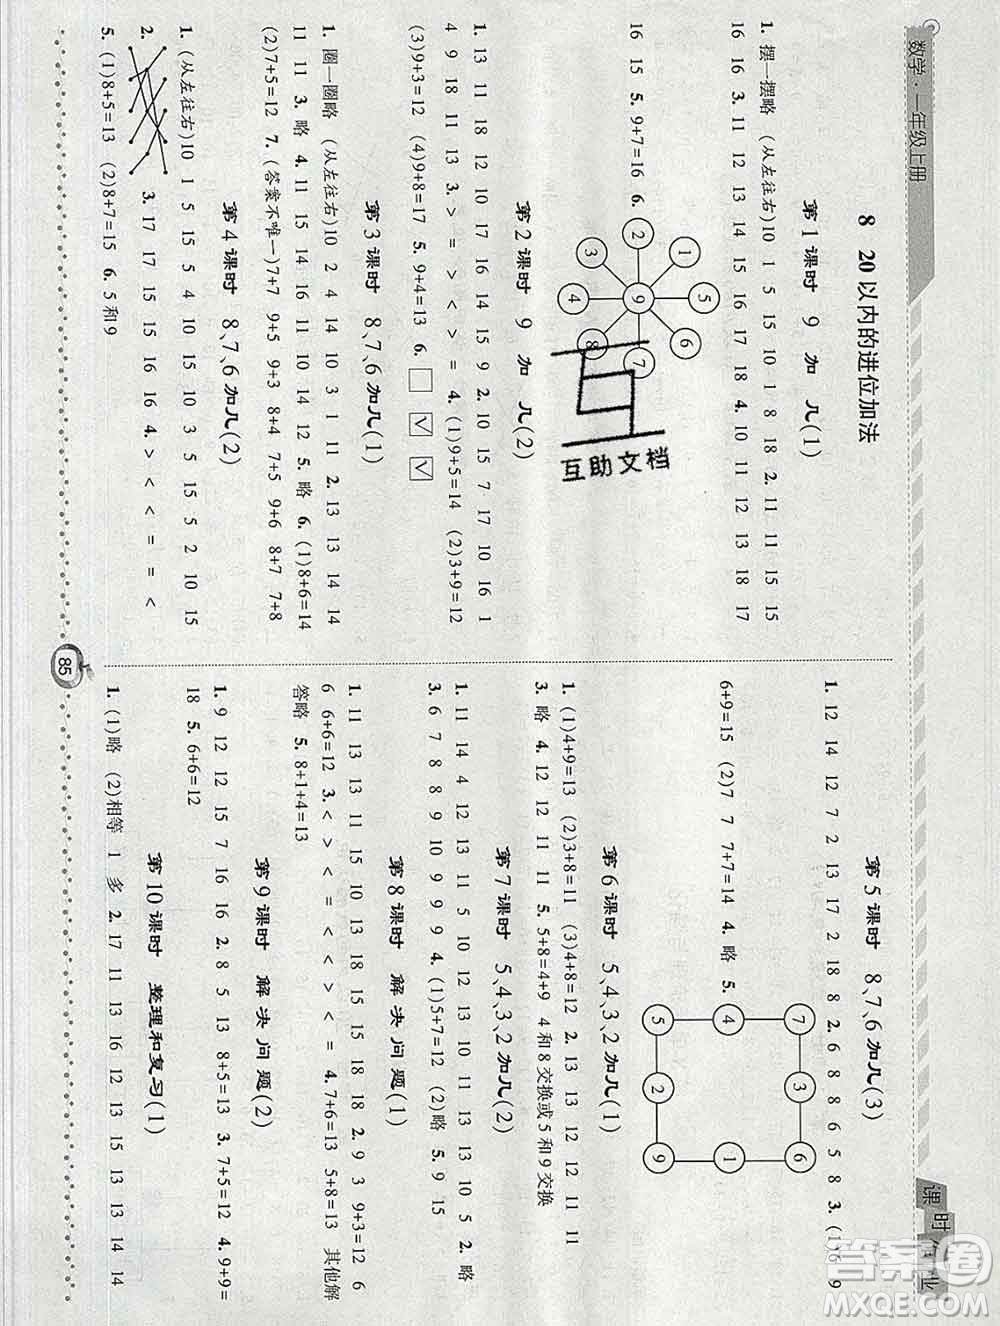 数学·一年级上册
8 20以内的进位加法
第1课时 9加几(1)
1. 摆一摆略 (从左往右)10 1 5 15 10 1 8 18 2. 11 15 15
16 16 3. 11 17 14 15 18 4. 10 11 12 13 18 17
16 15 5. 9+7=16 6.
2 1 5 6 7 8 4 3 9
第2课时 9加几(2)
1. 13 11 18 12 10 17 16 14 15 9 2. 10 15 7 10 16 1
4 9 18 13 11 17 3. > = > < > = 4. (1)9+5=14 (2)3+9=12
(3)9+3=12 (4)9+8=17 5. 9+4=13 6. □ ☑ ☑
第3课时 8、7、6加几(1)
1. 圈一圈略 (从左往右)10 2 4 14 10 3 1 11 2. 13 13 14 14
11 11 3. 略 4. 11 15 14 16 11 10 14 12 5. 略 6. (1)8+6=14
(2)7+5=12 7. (答案不唯一)7+7 9+5 9+3 8+4 7+5 9+6 8+7 7+8
第4课时 8、7、6加几(2)
1. (从左往右)10 1 5 15 15 10 3 5 15 5 2 10 15
2. 3. 17 17 15 15 16 16 4. > < < = = <
5. (1)8+5=13 (2)8+7=15 6. 5和9
第5课时 8、7、6加几(3)
1. 12 14 12 7 2 13 17 2 18 8 2. 6 8 5 8 3. (1)6 9
6+9=15 (2)7 7 7+7=14 4. 略 5.
7 3 6 4 1 5 2 9
第6课时 5、4、3、2加几(1)
1. (1)4+9=13 (2)3+8=11 (3)4+8=12 2. 13 13 11 12 11 11
3. 略 4. 12 12 11 11 5. 5+8=4+9 4和8交换或5和9交换
第7课时 5、4、3、2加几(2)
1. 11 14 4 12 13 11 5 10 12 13 10 11 13 13 10 5 2. 略
3. 6 7 8 8 9 10 9 9 9 9 4. (1)5+7=12 (2)略 5. 9 15
第8课时 解决问题(1)
1. 11 13 13 11 15 10 13 18 15 15 18 18 2. 9 3 9+3=12 6
6 6+6=12 3. < > < = < < > < = 4. 7+6=13 5+8=13 其他解
答略 5. 8+1+4=13
第9课时 解决问题(2)
1. 9 12 12 15 7 16 16 2. 8 5 13 8+5=13 3. 7+5=12 4. 9+9=
18 5. 6+6=12
第10课时 整理和复习(1)
1. (1)略 (2)相等 1 多 2. 17 11 11 13 16 12 13 15 13 13 14 14
85
课时作业
互助文档
答案圈
MXQE.COM